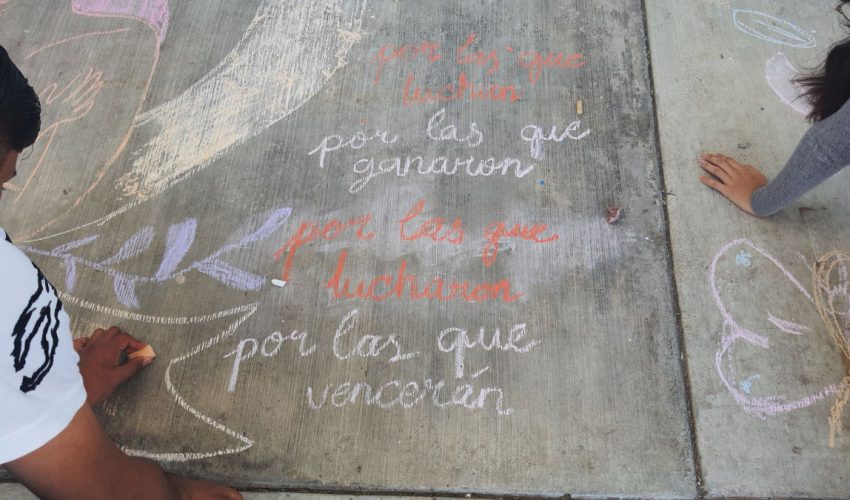 por las que
luchan
por las que
ganaron
por las que
lucharon
por las que
vencerán